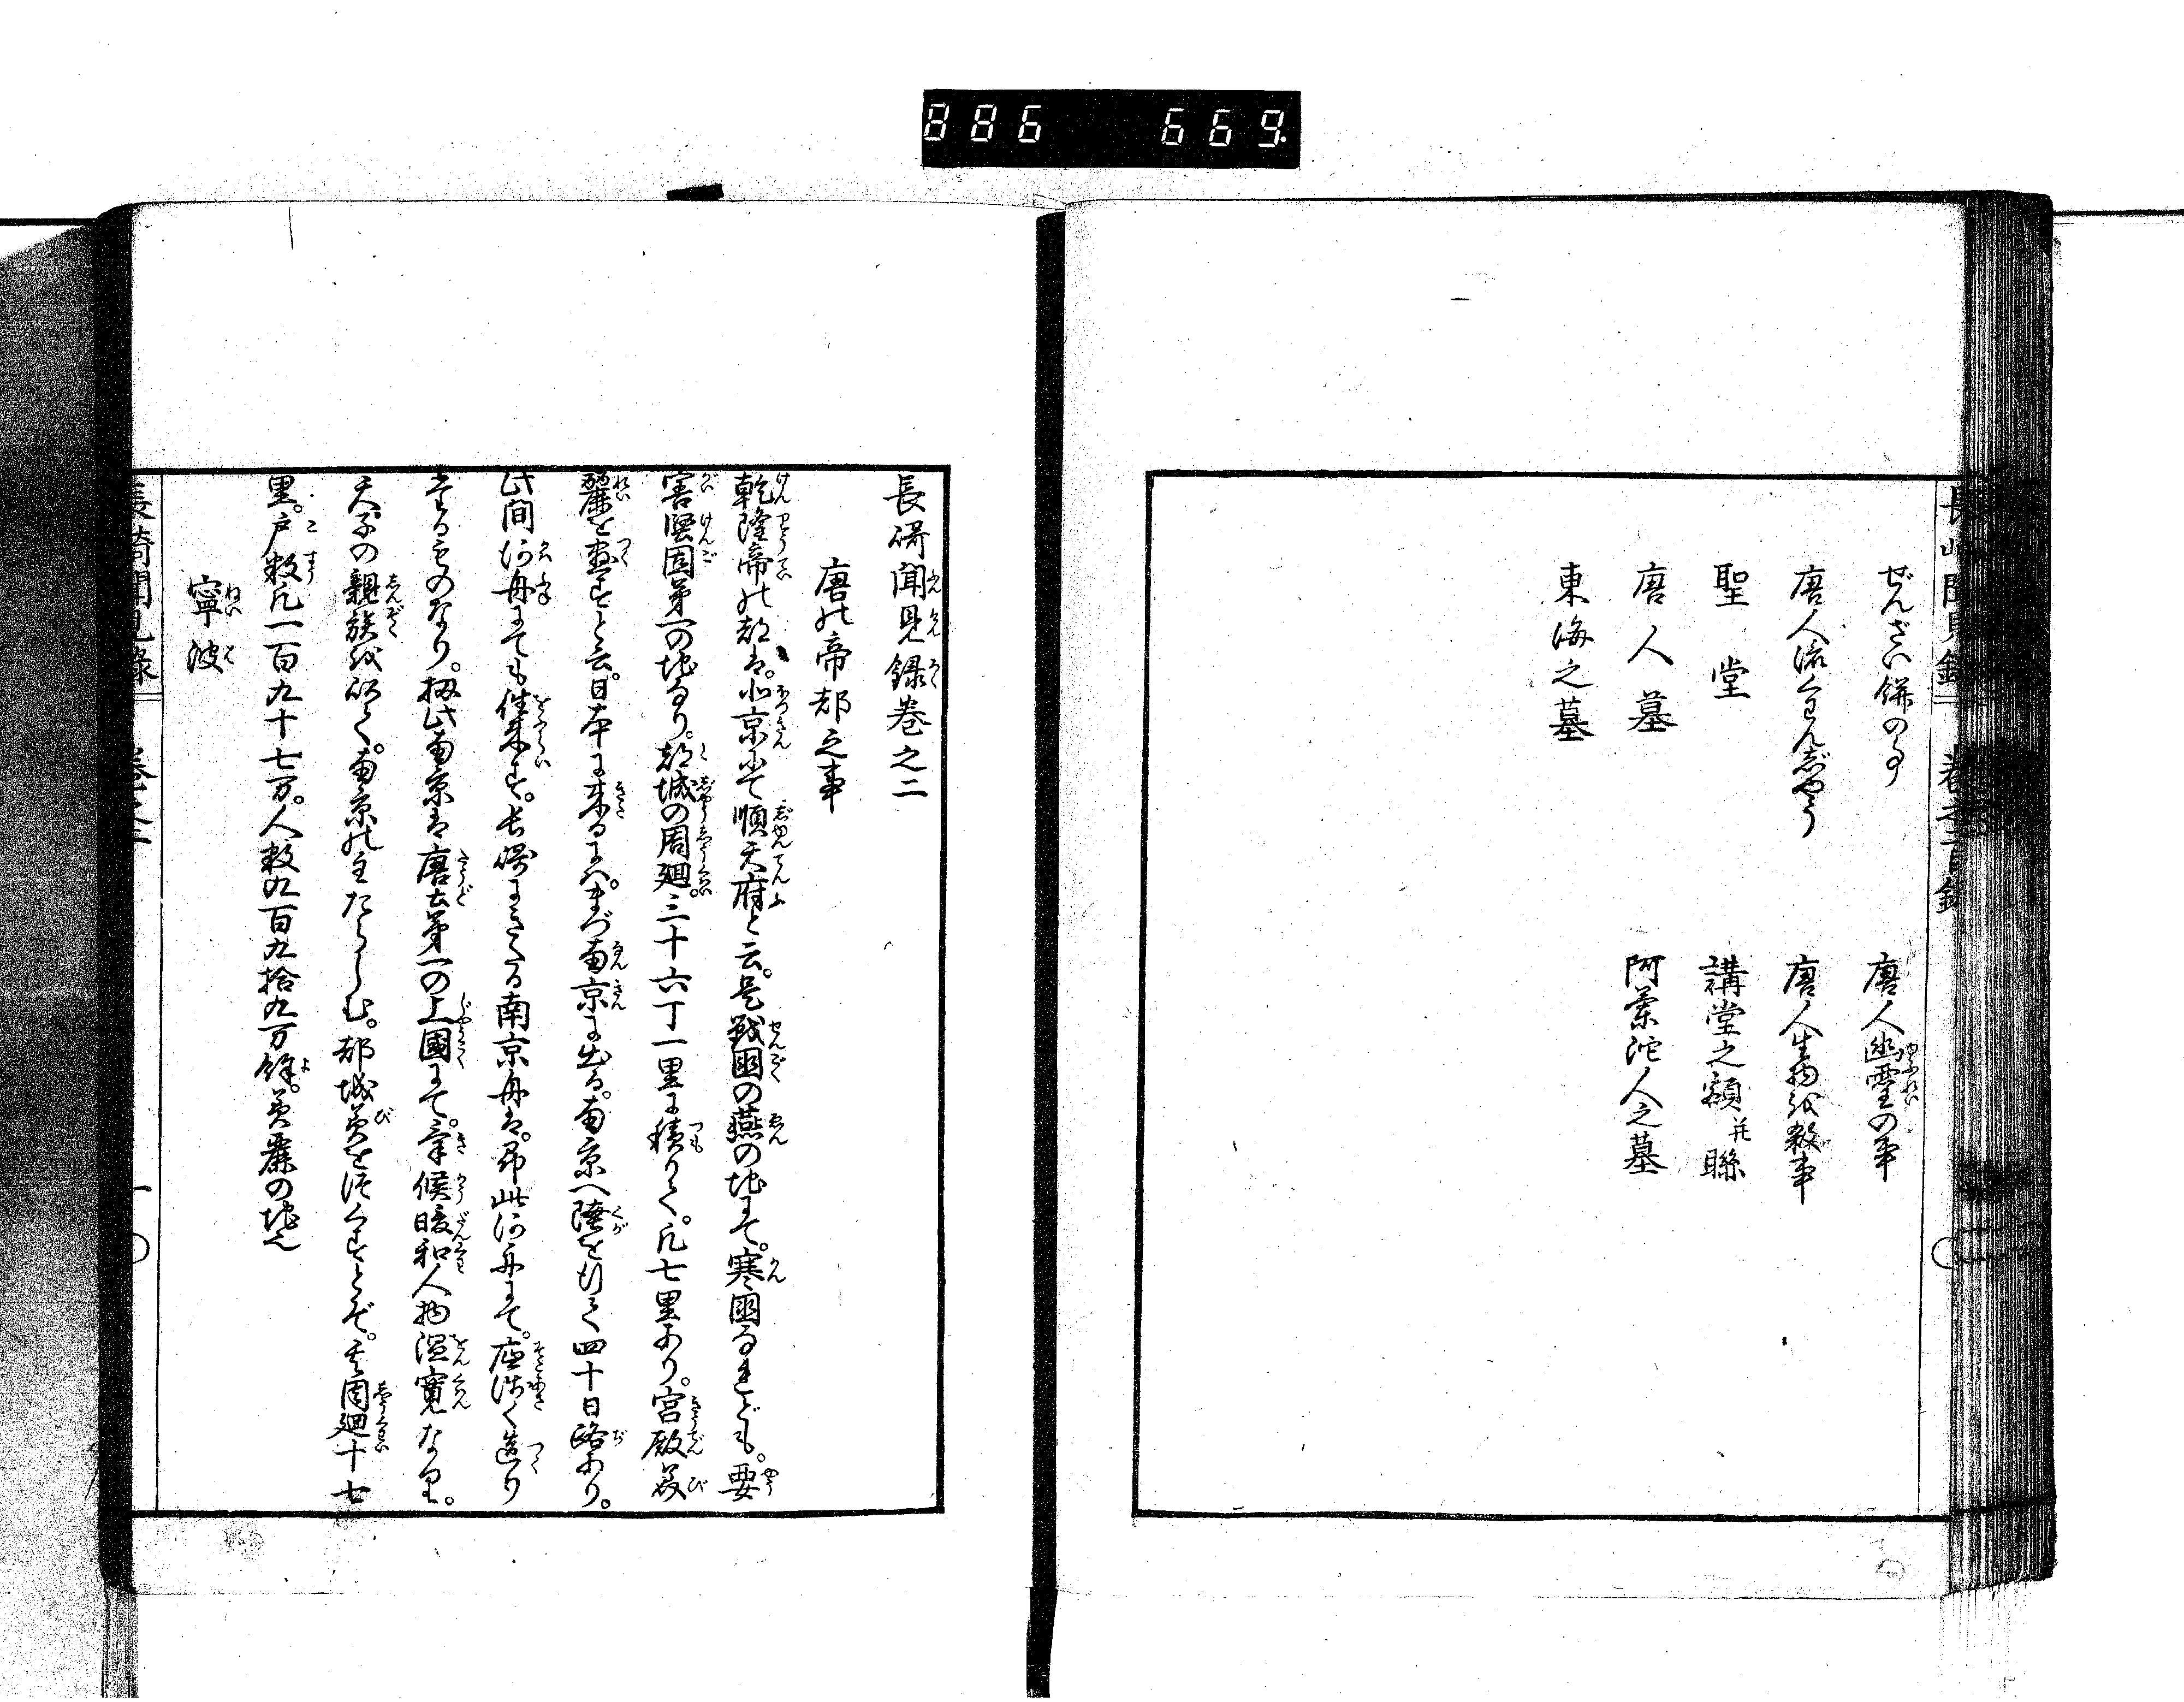 886 669
ぜんざい餅の事
唐人幽霊の事
唐人流くわんぢやう
唐人生物を殺事
聖堂
講堂之額并聯
唐人墓
阿蘭陀人之墓
東海之墓
長碕聞見録巻之二
唐の帝都之事
乾隆帝の都は。北京にて順天府と云。是戦国の燕の地にて。寒国なれども。要
害堅固第一の地なり。都城の周廻。三十六丁一里に積りて。凡七里あり。宮殿美
麗を盡すと云。日本に来るには。まづ南京に出る。南京へ陸を行て四十日路あり。
此間河舟にても往来す。長崎にきたる南京舟は。即此河舟にて。底浅く造り
たるものなり。扨此南京は唐土第一の上國にて。氣候暖和人物温寛なり。
天子の親族を以て。南京の主たらしむ。都城美を尽くすとぞ。其周廻十七
里。戸数凡一百九十七万。人数九百九拾九万餘。美麗の地也
寧波
長崎聞見録 巻之二 一